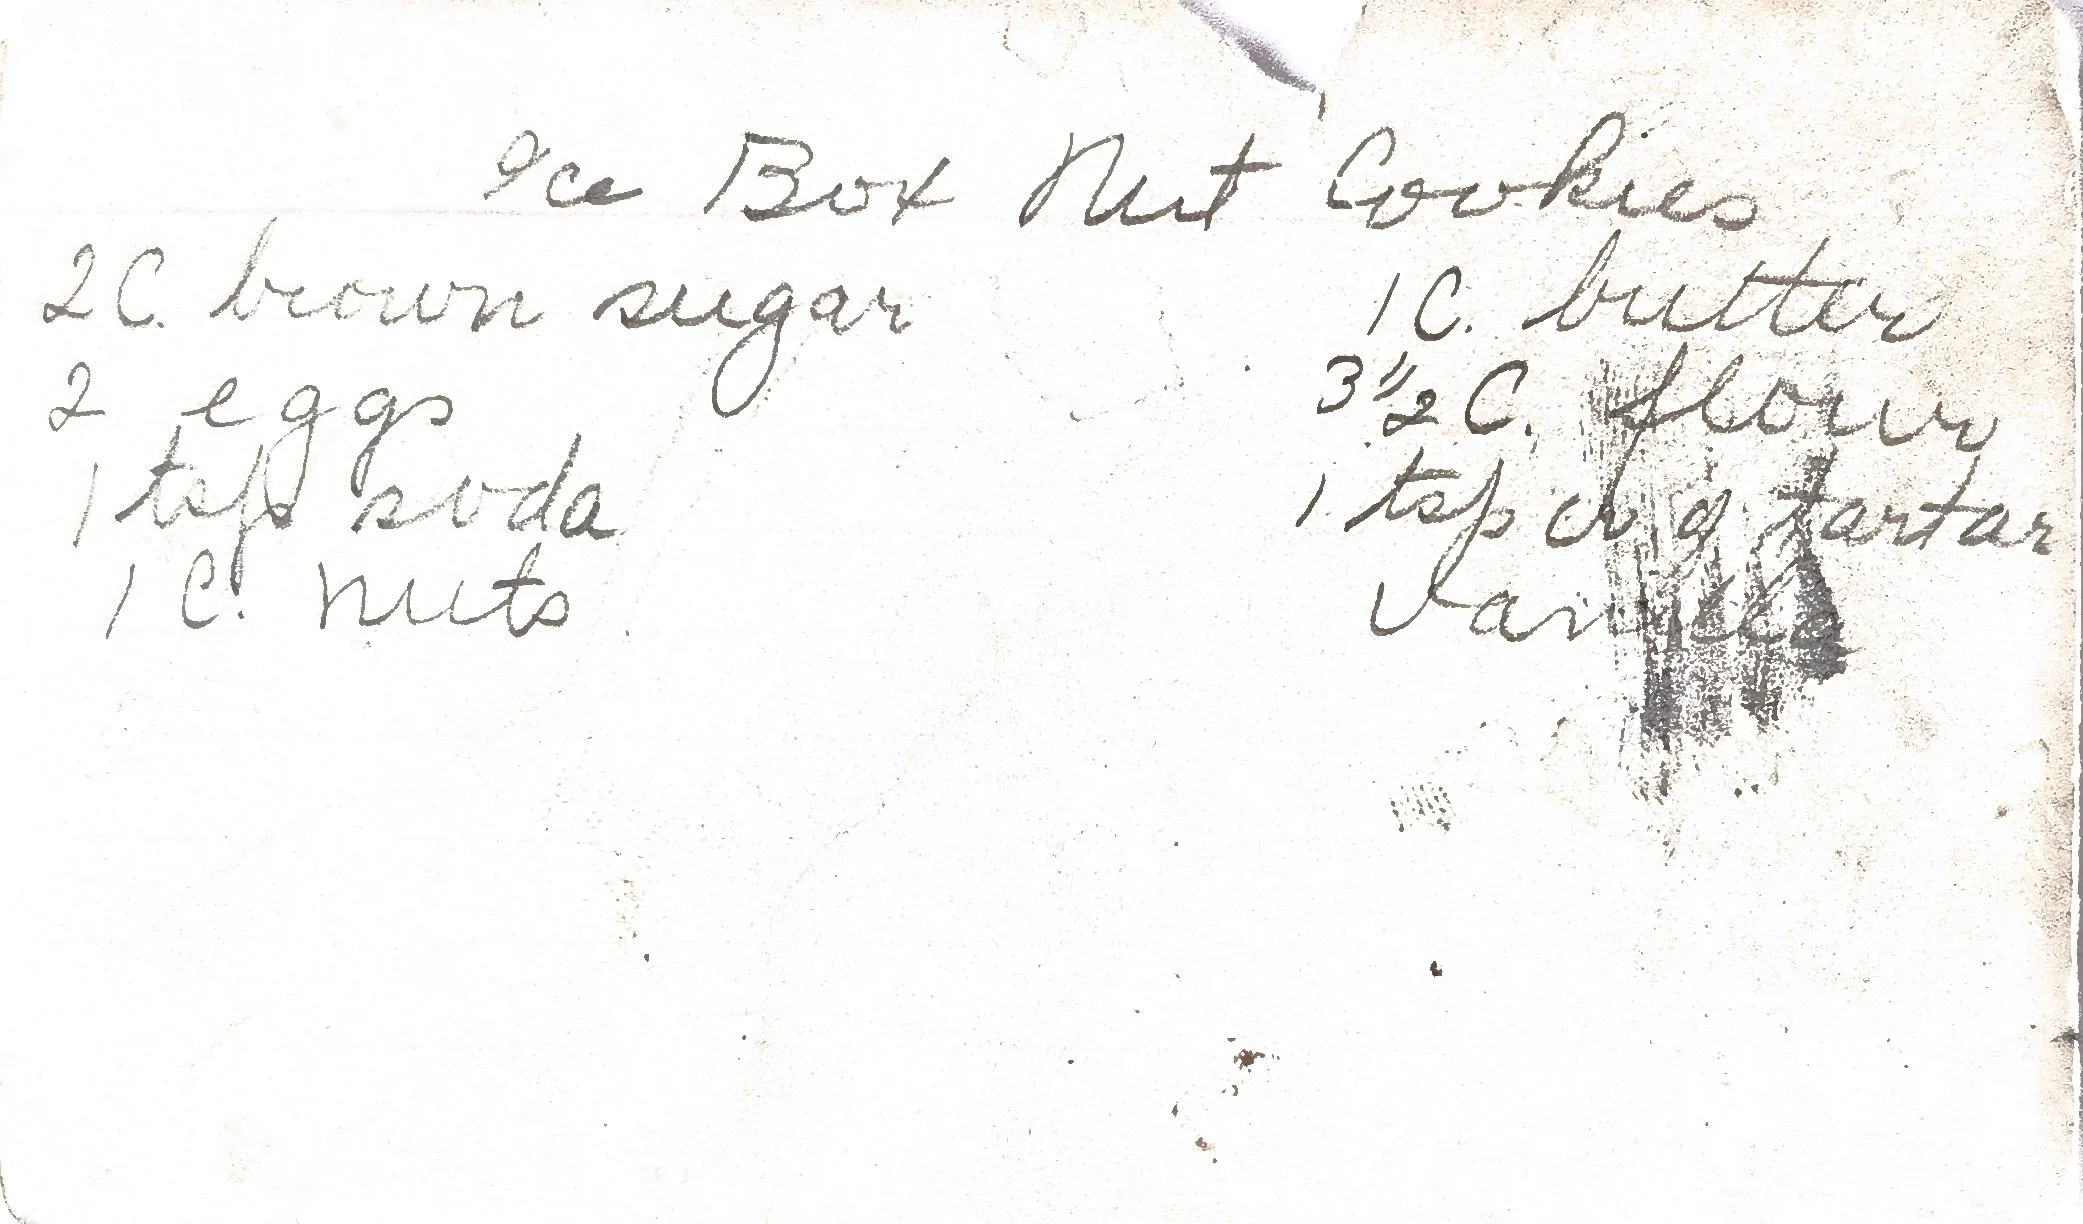 Ice Box Nut Cookies
2 C. brown sugar 1 C. butter
2 eggs 3 1/2 C. flour
1 tsp soda 1 tsp cr of tartar
1 C. nuts Vanilla